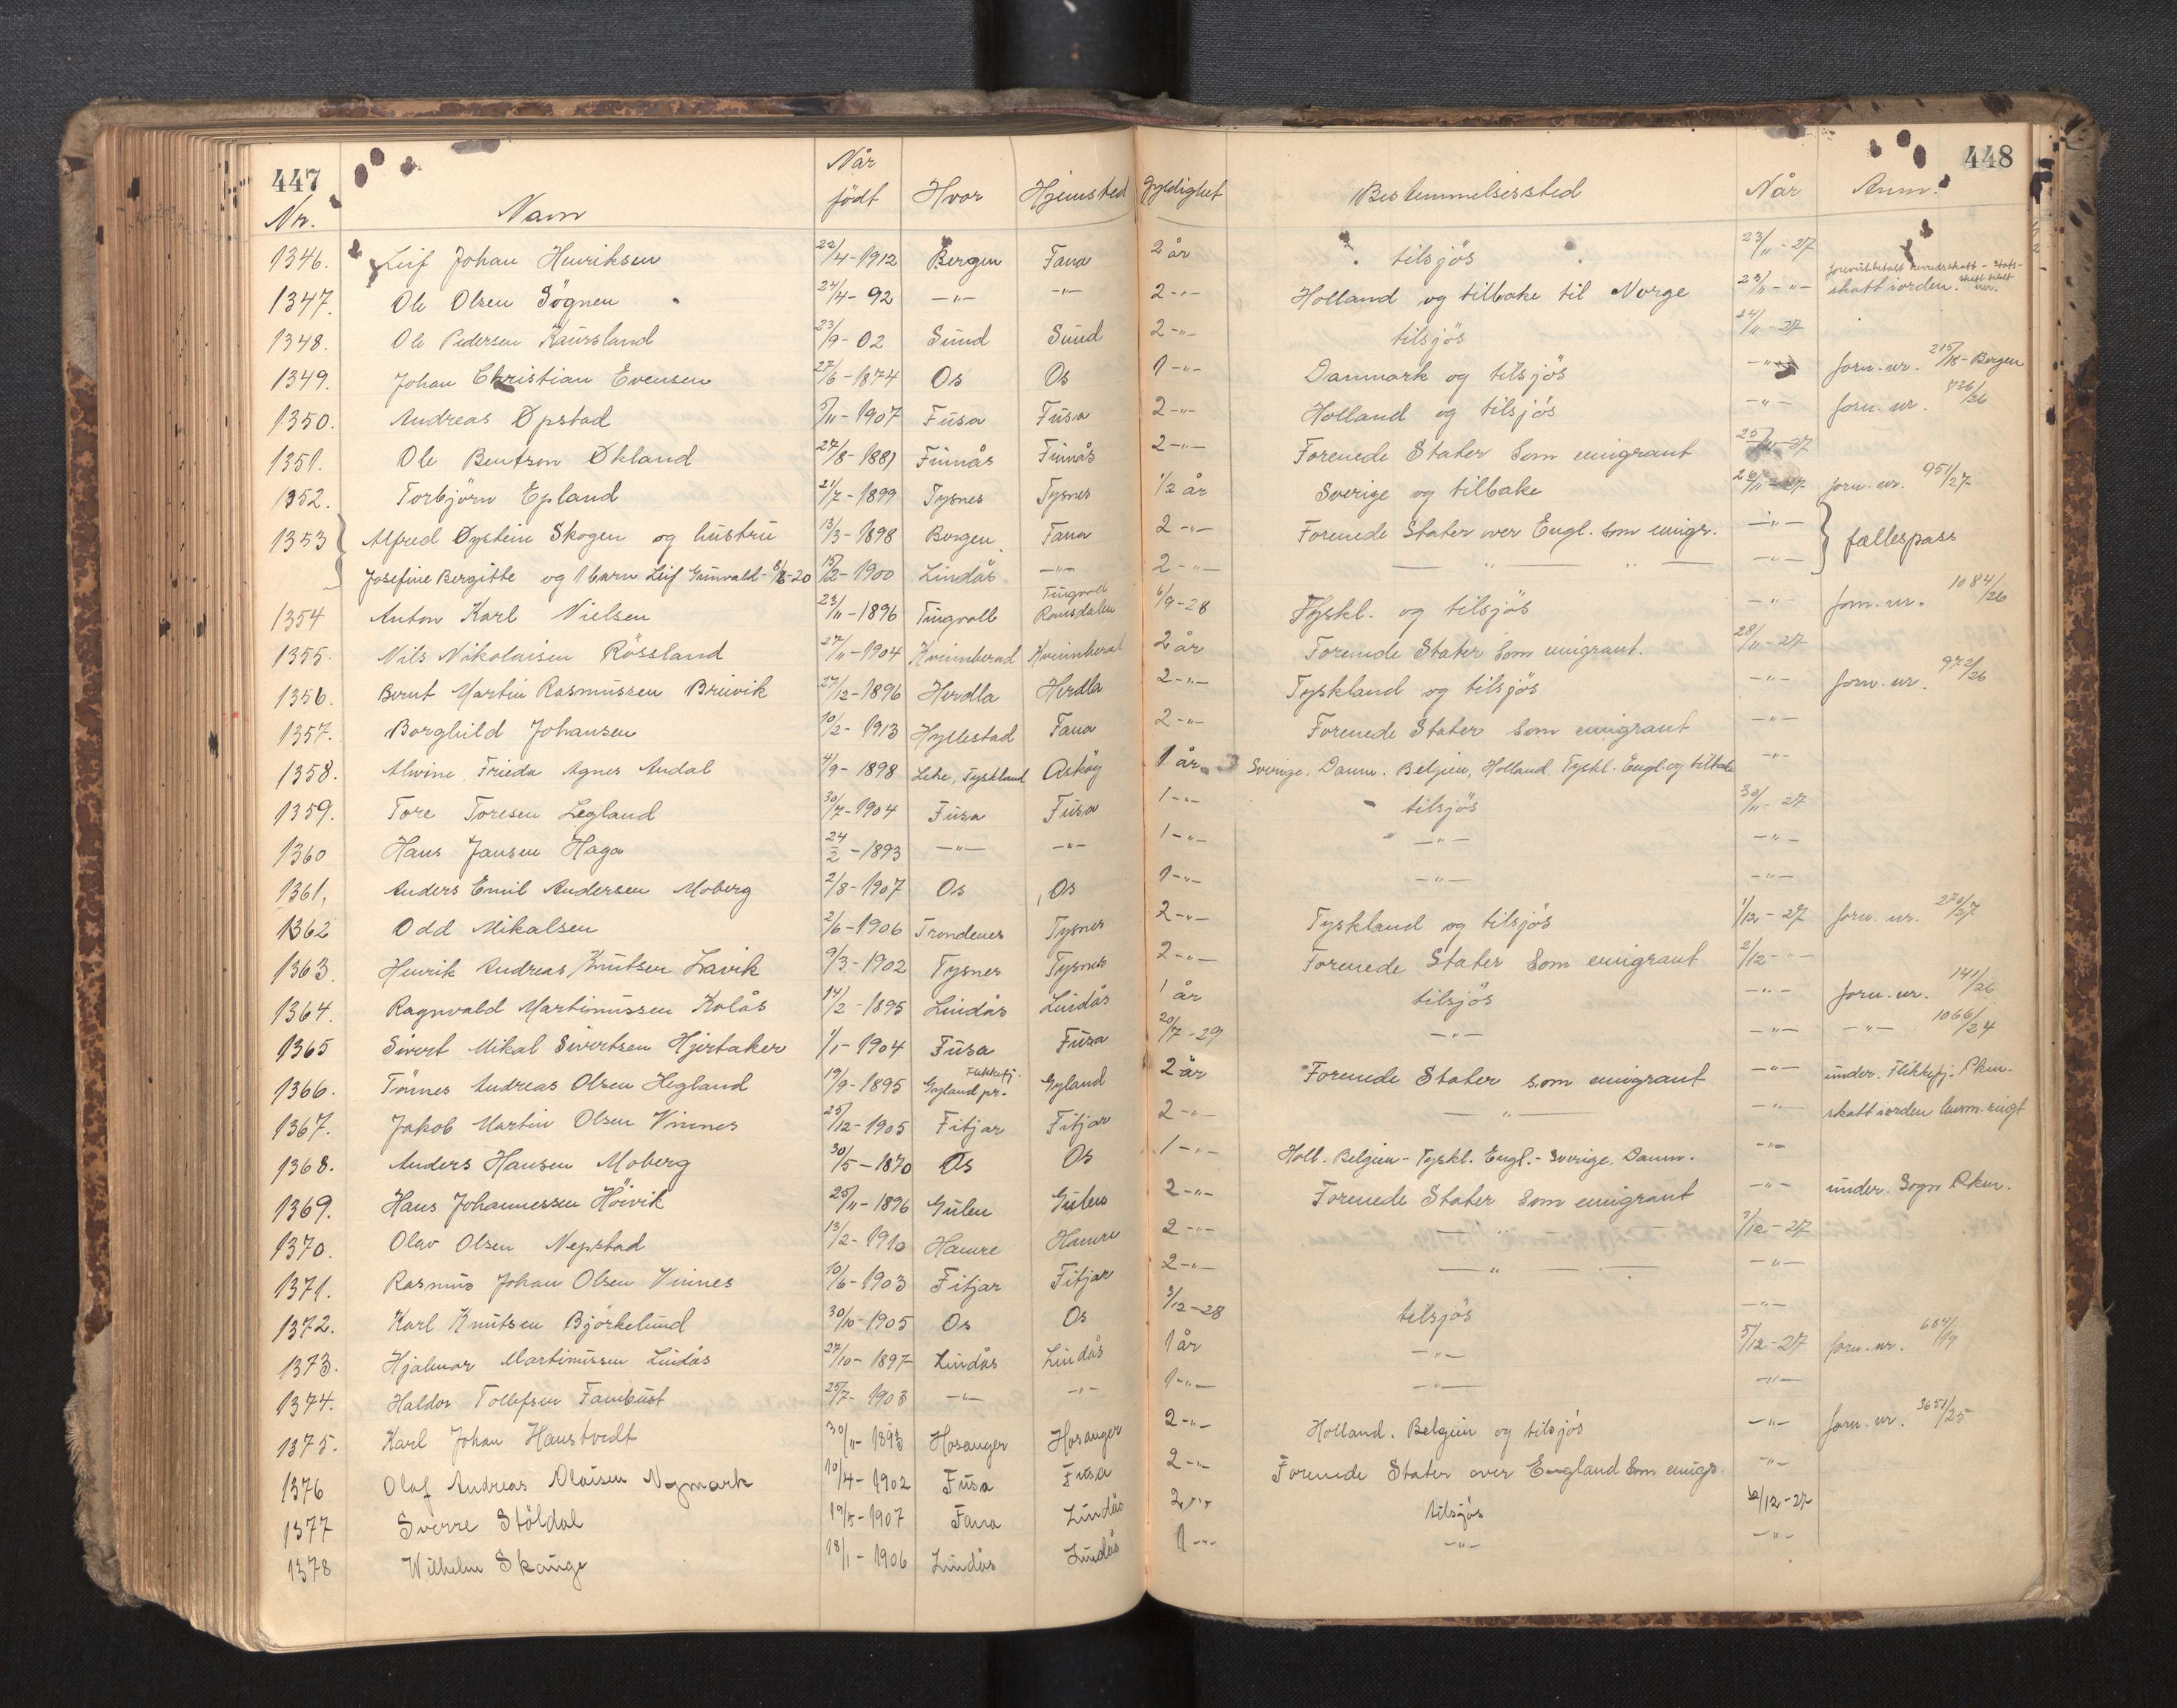 447 448
Nr. Navn Når födt Hvor Hjemsted Gyldighet Bestemmelsessted Når Anm.
1346. Leif Johan Henriksen 22/4-1912 Bergen Fana 2 år tilsjös 23/11-27
1347. Ole Olsen Sögnen 24/4-92 -"- -"- 2-"- Holland og tilbake til Norge 23/11-"- skatt iorden.
1348. Ole Pedersen Kaursland 23/9-02 Sund Sund 2-"- tilsjös 24/11-27
1349. Johan Christian Evensen 27/6-1874 Os Os 1-"- Danmark og tilsjös -"- forn. nr. 215/18-Bergen
1350. Andreas Øpstad 5/11-1907 Fusa Fusa 2-"- Holland og tilsjös -"- forn. nr. 726/26
1351. Ole Bentsen Økland 27/8-1881 Finnås Finnås 2-"- Forenede Stater som emigrant 25/11-27
1352. Torbjörn Epland 21/7-1899 Tysnes Tysnes 1/2 år Sverige og tilbake 26/11-27 forn. nr. 951/27
1353 Alfred Øystein Skogen og hustru 13/3-1898 Bergen Fana 2-"- Forenede Stater over Engl. som emigr. -"- fællespass
Josefine Bergitte og 1 barn Leif Grunvald-8/8-20 15/2-1900 Lindås -"- 2-"- -"- -"-
1354 Anton Karl Nielsen 23/11-1896 Tingvoll Tingvoll Romsdalen 6/9-28 Tyskl. og tilsjös -"- forn. nr. 1084/26
1355. Nils Nikolaisen Rössland 27/11-1904 Kvinnherad Kvinnherad 2 år Forenede Stater som emigrant. 28/11-27
1356. Bernt Martin Rasmussen Breivik 27/2-1896 Herdla Herdla 2-"- Tyskland og tilsjös -"- forn. nr. 972/26
1357. Borghild Johansen 10/2-1913 Hyllestad Fana 2-"- Forenede Stater som emigrant -"-
1358. Alwine Frieda Agnes Andal 4/9-1898 Lehe, Tyskland Asköy 1 år Sverige, Danm. Belgien, Holland, Tyskl. Engl. og tilbake -"-
1359. Tore Toresen Legland 30/7-1904 Fusa Fusa 1-"- tilsjös 30/11-27
1360 Hans Jansen Haga 24/2-1893 -"- -"- 1-"- -"- -"-
1361. Anders Emil Andersen Moberg 2/8-1907 Os Os 1-"- -"- -"-
1362 Odd Mikalsen 2/6-1906 Trondenes Tysnes 2-"- Tyskland og tilsjös 1/12-27 forn. nr. 270/27
1363. Henrik Andreas Knutsen Lavik 9/3-1902 Tysnes Tysnes 2-"- Forenede Stater som emigrant 2/12-"-
1364. Ragnvald Martinussen Kolås 14/2-1895 Lindås Lindås 1 år tilsjös -"- forn. nr. 141/26
1365 Sivert Mikal Sivertsen Hjertaker 1/1-1904 Fusa Fusa 20/7-29 -"- -"- -"- 1066/24
1366. Tönnes Andreas Olsen Hegland 19/9-1895 Gyland pr. Flekkefj. Gyland 2 år Forenede Stater som emigrant -"- under. Flekkefj. Pkm.
1367. Jakob Martin Olsen Vinnes 25/12-1905 Fitjar Fitjar 2-"- -"- -"- skatt iorden
1368. Anders Hansen Moberg 30/5-1870 Os Os 1-"- Holl. Belgien-Tyskl. Engl.-Sverige, Danm. -"-
1369. Hans Johannessen Höivik 25/11-1896 Gulen Gulen 2-"- Forenede Stater som emigrant -"- under. Sogn Pkm.
1370. Olav Olsen Nepstad 13/2-1910 Hamre Hamre 2-"- -"- 3/12-27
1371. Rasmus Johan Olsen Vinnes 10/6-1903 Fitjar Fitjar 2-"- -"- -"-
1372. Karl Knutsen Björkelund 30/10-1905 Os Os 3/12-28 tilsjös -"-
1373. Hjalmar Martinussen Lindås 27/10-1897 Lindås Lindås 1 år -"- 5/12-27 forn. nr. 684/19
1374. Haldor Tollefsen Fambust 25/7-1903 -"- -"- 1-"- -"- -"-
1375. Karl Johan Haustvedt 30/11-1893 Hosanger Hosanger 2-"- Holland. Belgien og tilsjös -"- forn. nr. 3651/25
1376 Olaf Andreas Olaisen Nymark 10/4-1902 Fusa Fusa 2-"- Forenede Stater over England som emigr. -"-
1377 Sverre Stöldal 19/5-1907 Fana Lindås 2-"- tilsjös 6/12-27
1378 Wilhelm Skauge 18/1-1906 Lindås Lindås 1-"- -"- -"-